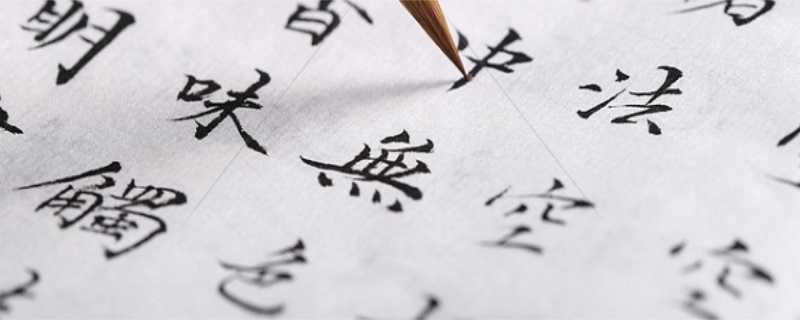 空
法空
無色
香味觸
明